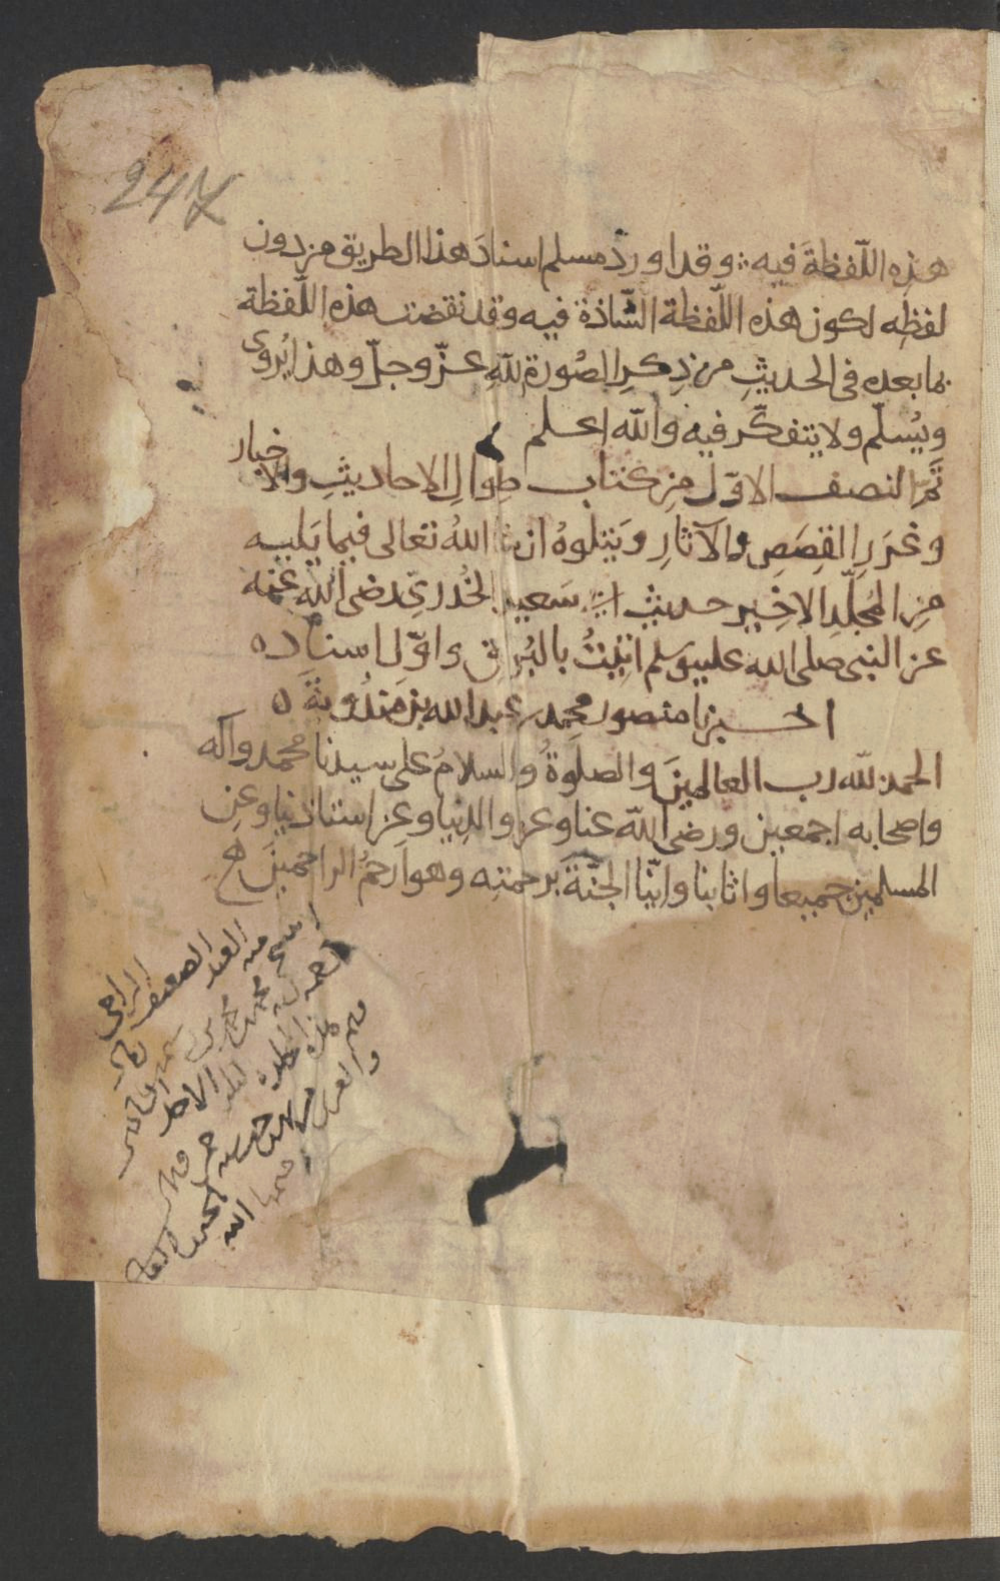 247
هذه اللّفظةَ فيه وقد اورد مسلم اسنادَ هذا الطريق من دون
لفظِه لكون هذه اللّفظة الشّاذة فيه وقد نقضت هذه اللّفظة
بما بعده فى الحديثِ من ذِكرِ الصُورة للّهِ عزّ وجلّ وهذا يُروى
ويُسلّم ولا يتفكّر فيه واللّه اعلم
تمّ النصف الاوّل مِن كتاب طِوالِ الاحاديثِ والاخبار
وغرَرِ القِصَصِ والآثارِ ويَتلوهُ ان شا اللهُ تعالى فيما يَليه
مِن المُجلّدِ الاخِير حديث ابى سَعيد الخُدرىّ رضى اللّه عنه
عن النبى صلى الله عليه وسلم اتِيْتُ بالبُراق واوّل اسناده
اخبرنا منصور محمد بن عبد الله بن مَندُويَة ه
الحمد للّه رب العالمينَ والصلوٰةُ والسلامُ على سيدنا محمد وآله
واصحابه اجمعين ورضى اللّه عنا وعن والدِينا وعن استاذينا وعن
المسلمين جميعا واثابنا وايّنا الجنّةَ برحمتِه وهو ارحمُ الراحمينَ
العبد الضعيف الراجى
محمد بن محمد بن
الله